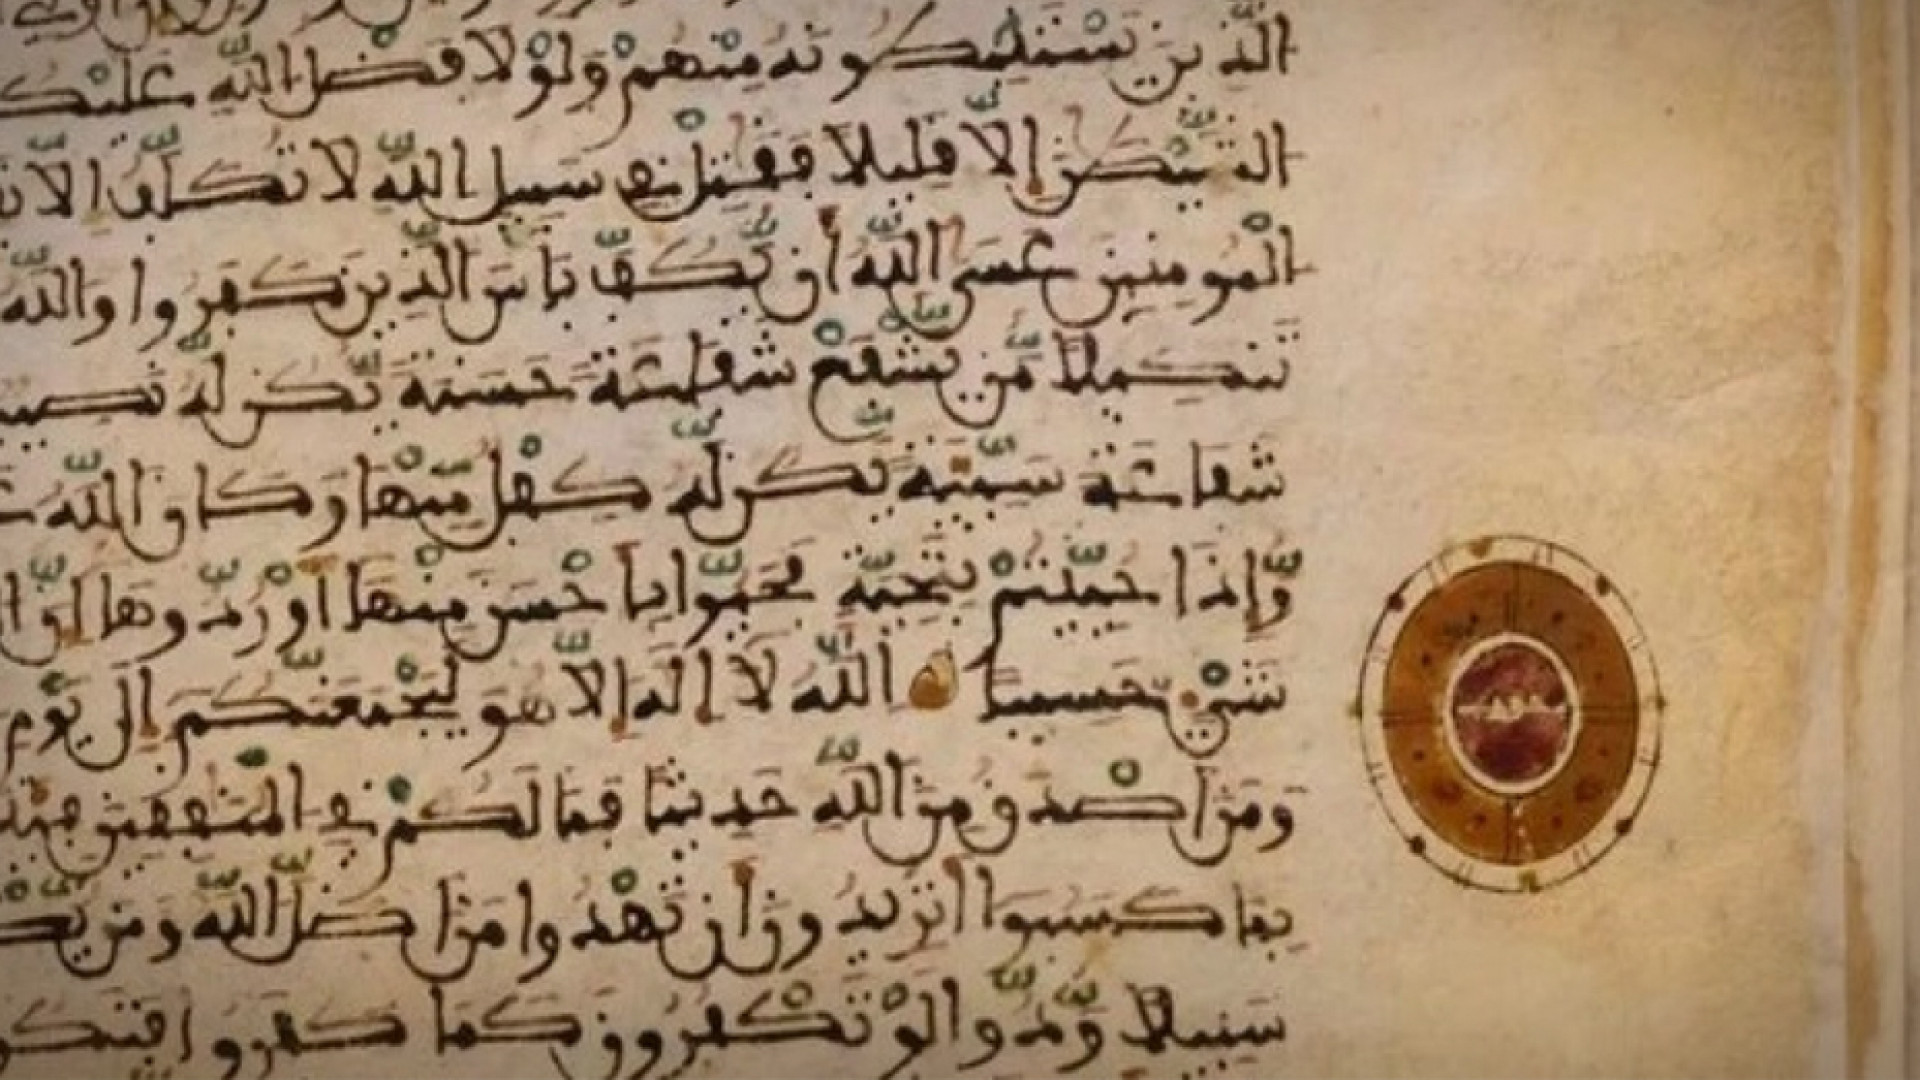 الَّذِينَ يَسْتَنۢبِطُونَهُ مِنْهُمْ وَلَوْلَا فَضْلُ اللَّهِ عَلَيْكُ
الشَّيْطَٰنَ إِلَّا قَلِيلًا فَقَٰتِلْ فِي سَبِيلِ اللَّهِ لَا تُكَلَّفُ إِلَّا
الْمُومِنِينَ عَسَى اللَّهُ أَن يَّكُفَّ بَأْسَ الَّذِينَ كَفَرُوا وَاللَّهُ
تَنكِيلًا مَّن يَشْفَعْ شَفَاعَةً حَسَنَةً يَّكُن لَّهُ نَصِيب
شَفَاعَةً سَيِّئَةً يَّكُن لَّهُ كِفْلٌ مِّنْهَا وَكَانَ اللَّهُ
وَّإِذَا حُيِّيتُم بِتَحِيَّةٍ فَحَيُّوا بِأَحْسَنَ مِنْهَا أَوْ رُدُّوهَا إِنَّ
شَيْءٍ حَسِيبًا اللَّهُ لَا إِلَٰهَ إِلَّا هُوَ لَيَجْمَعَنَّكُمْ إِلَىٰ يَوْمِ
وَمَنْ أَصْدَقُ مِنَ اللَّهِ حَدِيثًا فَمَا لَكُمْ فِي الْمُنَٰفِقِينَ
بِمَا كَسَبُوا أَتُرِيدُونَ أَن تَهْدُوا مَنْ أَضَلَّ اللَّهُ وَمَن يُّض
سَبِيلًا وَدُّوا لَوْ تَكْفُرُونَ كَمَا كَفَرُوا فَتَكُو